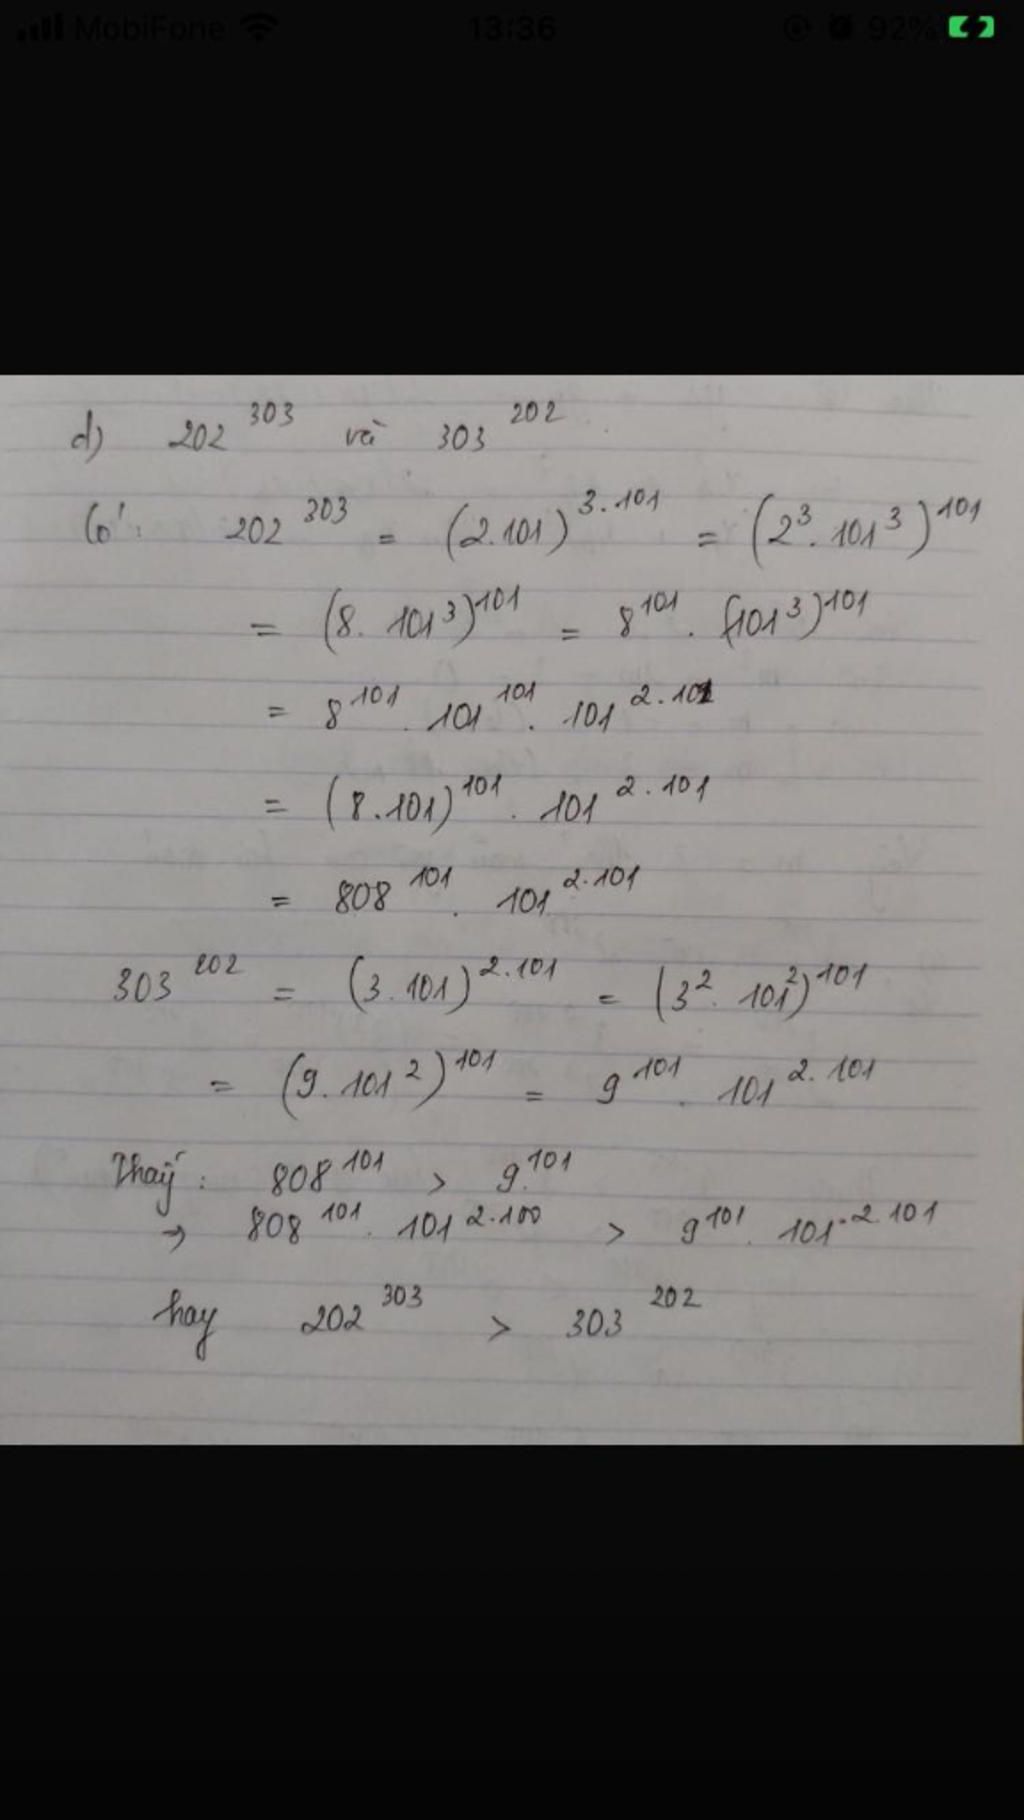 MobiFone 13:36 92%
d) 202^303 và 303^202.
Có: 202^303 = (2.101)^3.101 = (2^3. 101^3)^101
= (8. 101^3)^101 = 8^101. (101^3)^101
= 8^101. 101^101. 101^2.101
= (8.101)^101. 101^2.101
= 808^101. 101^2.101
303^202 = (3.101)^2.101 = (3^2. 101^2)^101
= (9.101^2)^101 = 9^101. 101^2.101
Thấy: 808^101 > 9^101
→ 808^101. 101^2.100 > 9^101. 101^2.101
hay 202^303 > 303^202